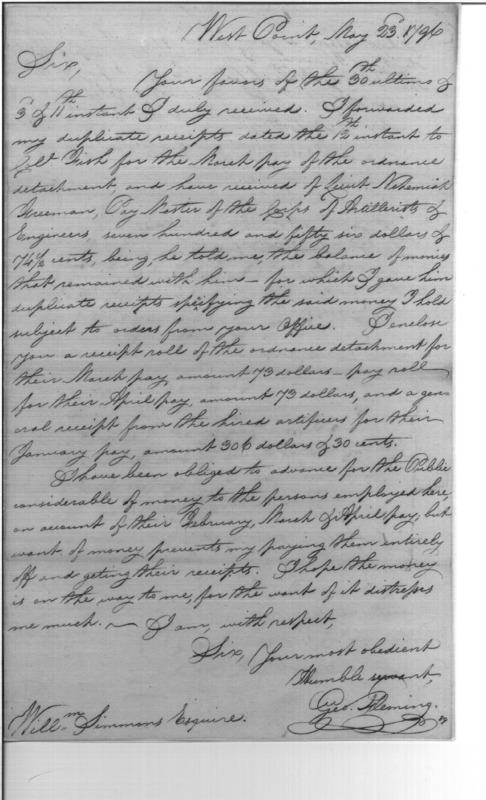 West Point, May 23d. 1796
Sir,
Your favors of the 30th ultimo &
3d & 11th instant I duly received. I forwarded
my duplicate receipts dated the 12th instant to
Fish for the March pay of the ordnance
detachment, and have received of Lieut Nehemiah
Freeman, Pay Master of the Corps of Artillerists &
Engineers, seven hundred and fifty six dollars &
74½ cents, being, he told me, the balance of monies
that remained with him – for which I gave him
duplicate receipts specifying the said money I hold
subject to orders from your Office. I enclose
you a receipt roll of the ordnance detachment for
their March pay, amount 73 dollars – pay roll
for their April pay, amount 73 dollars, and a gen-
eral receipt from the hired artificers for their
January pay, amount 306 dollars & 30 cents.
I have been obliged to advance for the Public
considerable of money to the persons employed here,
on account of their February, March & April pay, but
want of money prevents my paying them entirely
off and geting their receipts. I hope the money
is on the way to me, for the want of it distresses
me much. – I am, with respect,
Sir, Your most obedient
Humble servant,
Geo. Fleming.
Willm Simmons Esquire.